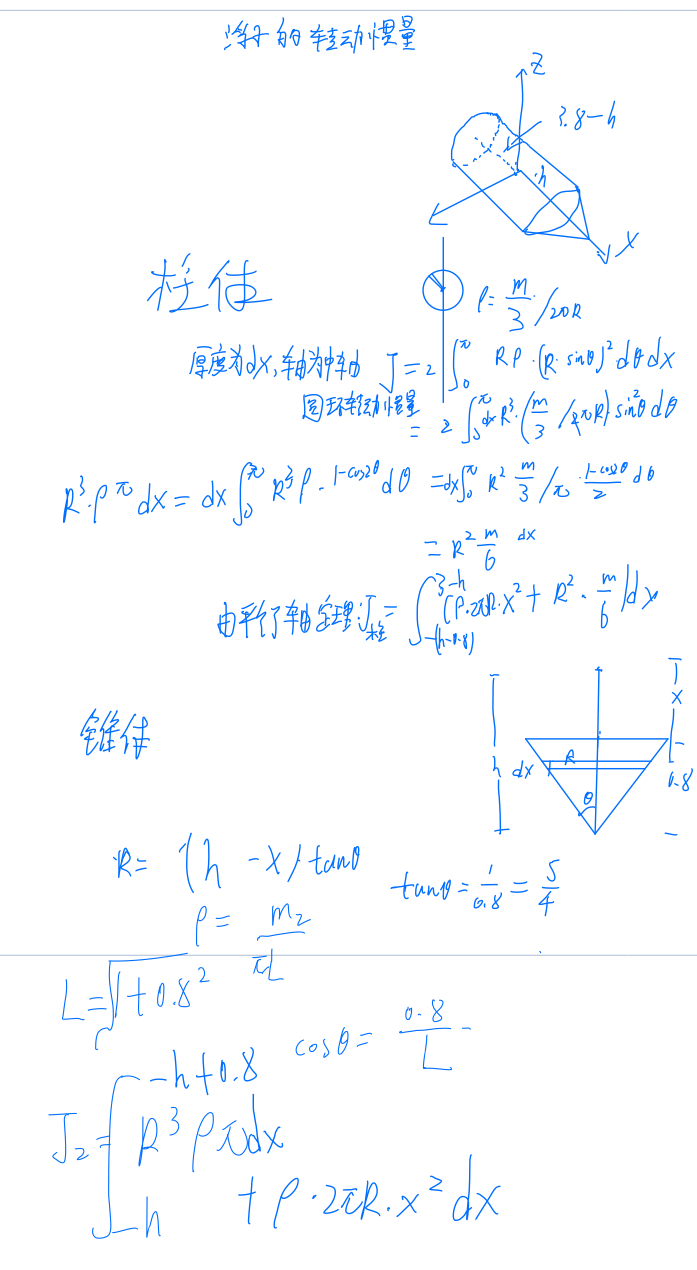 浮子的转动惯量
Z
3.8-h
h
X
柱体
ρ=m/3/2πR
厚度为dx,轴为中轴 J=2∫₀^π Rρ·(R·sinθ)²dθdx
圆环转动惯量 =2∫₀^π dx R³·(m/3/2πR) sin²θdθ
R³·ρπdx=dx∫₀^π R³ρ·1-cos2θ dθ =dx∫₀^π R² m/3/π·1-cos2θ/2 dθ
=R² m/6 dx
由平行轴定理:J柱=∫_{-(h-0.8)}^{3-h}(ρ·2πR·x²+R²·m/6)dx
锥体
h
dx
R
θ
x
0.8
R=(h-x)tanθ
tanθ=1/0.8=5/4
ρ=m₂/πL
L=√1+0.8²
cosθ=0.8/L
J₂=∫_{-h}^{-h+0.8} R³ρπdx
+ρ·2πR·x²dx